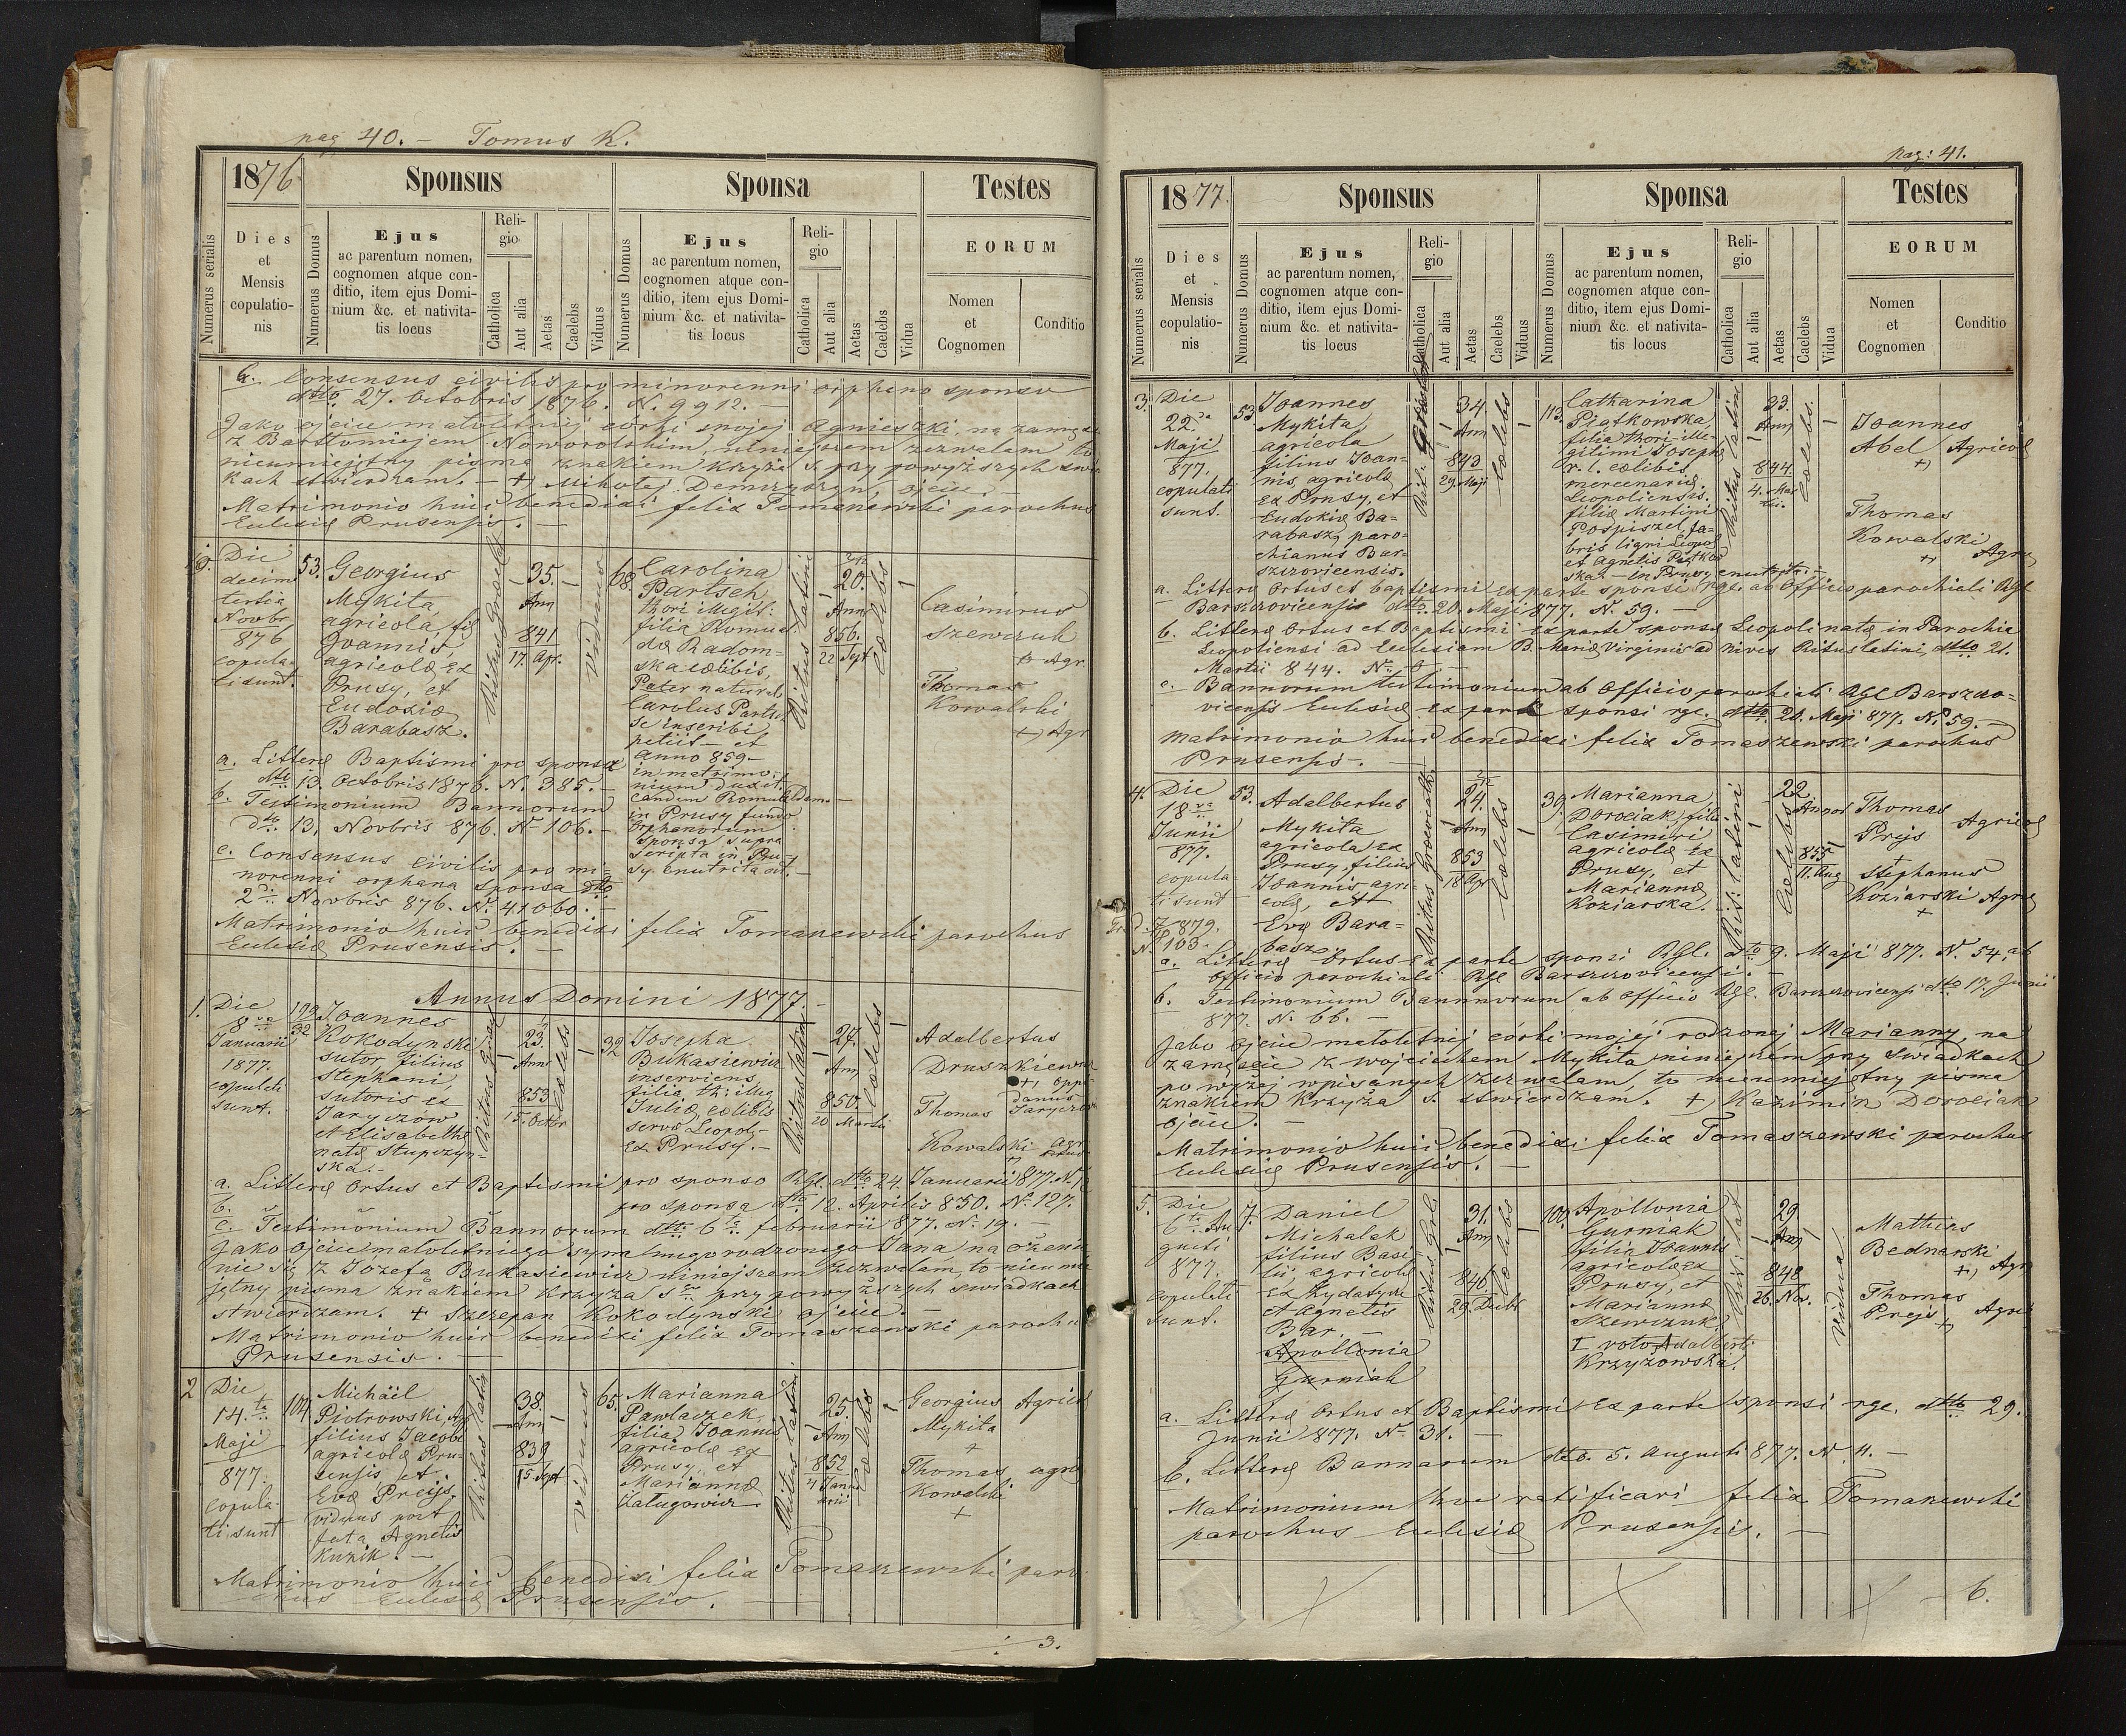 pag 40. — Tomus K.
1876
Sponsus
Sponsa
Testes
Numerus serialis
Dies
et
Mensis
copulatio-
nis
Numerus Domus
Ejus
ac parentum nomen,
cognomen atque con-
ditio, item ejus Domi-
nium &c. et nativita-
tis locus
Reli-
gio
Catholica
Aut alia
Aetas
Caelebs
Viduus
Numerus Domus
Ejus
ac parentum nomen,
cognomen atque con-
ditio, item ejus Domi-
nium &c. et nativita-
tis locus
Reli-
gio
Catholica
Aut alia
Aetas
Caelebs
Vidua
EORUM
Nomen
et
Cognomen
Conditio
b. Consensus civilis pro minorenni orphano sponso
dtto 27. Octobris 1876. N. 9912. —
Jako ojciec małoletniej córki swojej Agnieszki, na zamęście
z Bartłomiejem Noworolskim, niniejszem zezwalam to
nieumiejętny pisma znakiem krzyża S. przy powyższych świad
kach stwierdzam. — +) Mikołaj Demczyszyn, ojciec. —
Matrimonio huic benedixi felix Tomaszewski parochus
Eclesiæ Prusensis. —
Die
decima
tertia
Novbr
876
copula-
ti sunt.
53.
Georgius
Mykita,
agricola, fil
Joannis,
agricolæ ex
Prusy, et
Eudoxiæ
Barabasz.
Ritus Græci
35.
Ann
841
17. Apr.
Viduus
68.
Carolina
Partsch
thori illegit:
filia Romual
dæ Radom-
ska cælibis,
Pater naturalis
Carolus Partsch
se inscribi
petiit — et
Anno 859—
in matrimo-
nium duxit
eandem Romualdam. —
in Prusy fundo
Orphanorum
sponsa supra
scripta in Pru-
sy enutrita est. —
Ritus latini
20.
Ann
856.
22 Sept
cælebs
Casimirus
Szewczuk
+ Agr.
Thomas
Kowalski
+) Agr
a. Litteræ Baptismi pro sponsa
dtto 13. Octobris 1876. N. 385. —
b. Testimonium Bannorum
dtto 13. Novbris 876. N. 106. —
c. Consensus civilis pro mi-
norenni orphana sponsa dtto
2di Novbris 876. N. 41060. —
Matrimonio huic benedixi felix Tomaszewski parochus
Eclesiæ Prusensis. —
Annus Domini 1877. —
1.
Die
8va
Januarii
1877.
copulati
sunt.
192
32
Joannes
Kokodynski
sutor, filius
Stephani,
sutoris ex
Jaryczow
et Elisabethæ
natæ Stupczyn-
ska. —
23.
Anni
853
15. Octbr
cælebs
32
Josepha
Bukasiewicz
inserviens,
filia th: illeg
Juliæ, cælibis
servæ Leopol-
ex Prusy. —
Ritus latini
27.
Ann
850.
20 Martii
cælebs
Adalbertus
Druszkiewicz
+) oppi-
danus
Jaryczow
Thomas
Kowalski Agr
a. Litteræ Ortus et Baptismi pro sponso Rgl. dtto 24. Januarii 877. N. 1
b. pro sponsa dtto 12. Aprilis 850. N. 127.
c. Testimonium Bannorum dtto 6ta februarii 877. N. 19. —
Jako Ojciec małoletniego syna mego rodzonego Jana na ożenie
nie się z Józefą Bukasiewicz niniejszem zezwalam, to nieumie
jętny pisma znakiem krzyża S. przy powyższych świadkach
stwierdzam. + Szczepan Kokodynski ojciec. —
Matrimonio huic benedixi felix Tomaszewski parochu
Prusensis. —
2
Die
14.ta
Maji
877
copula-
ti sunt
104
Michäel
Piotrowski, Agr
filius Jacobi
agricolæ Pru-
sensis, et
Evæ Prejs.
viduus post
fata Agnetis
Kuzik. —
Ritus latini
38.
Ann
839
15. Sept
Viduus
65.
Marianna
Pawlaczek,
filia Joannis
agricolæ ex
Prusy, et
Mariannæ
Załugowicz
Ritus latini
25.
Ann
852
4 Janu-
arii
cælebs
Georgius Agricol
Mykita
+
Thomas agric
Kowalski
+
Matrimonio huic benedixi felix Tomaszewski paro-
chus Eclesiæ Prusensis. —
3.
pag: 41.
1877.
Sponsus
Sponsa
Testes
Numerus serialis
Dies
et
Mensis
copulatio-
nis
Numerus Domus
Ejus
ac parentum nomen,
cognomen atque con-
ditio, item ejus Domi-
nium &c. et nativita-
tis locus
Reli-
gio
Catholica
Aut alia
Aetas
Caelebs
Viduus
Numerus Domus
Ejus
ac parentum nomen,
cognomen atque con-
ditio, item ejus Domi-
nium &c. et nativita-
tis locus
Reli-
gio
Catholica
Aut alia
Aetas
Caelebs
Vidua
EORUM
Nomen
et
Cognomen
Conditio
3.
Die
22.da
Maji
877.
copulati
sunt.
53
Joannes
Mykita,
agricola
filius Joan-
nis, agricolæ
ex Prusy, et
Eudokiæ Ba-
rabasz, paro-
chianus Bar-
szczovicensis.
34
Ann
843
29. Maji
cælebs
113.
Catharina
Piątkowska,
filia thori ille-
gitimi Joseph
r. l. cælibis
mercenariæ,
Leopoliensis.
filiæ Martini
Pospiszel, fa-
bris ligni Leopol
et Agnetis Piątkow
ska. — in Prusy enutrita. —
Ritus latini
33.
Ann
844.
4. Mar-
tii.
cælebs.
Joannes
Abel Agricol
+)
Thomas
Kowalski
+) Agric
a. Litteræ Ortus et baptismi ex parte sponsi rge. ab Officio parochiali Rgl
Barszczovicensi dtto 20. Maji 877. N. 59. —
b. Litteræ Ortus et Baptismi ex parte sponsæ Leopoli natæ in Parochia
Leopoliensi ad Eclesiam B. Mariæ Virginis ad nives Ritus latini, dtto 21.
Martii 844. N.
c. Bannorum testimonium ab Officio parochiali Rgl Barszczo-
vicensis Eclesiæ ex parte sponsi rge. dtto 21. Maji 877. N. 59. —
Matrimonio huic benedixi felix Tomaszewski parochus
Prusensis. —
4.
Die
18va
Junii
877.
copula-
ti sunt
53.
Adalbertus
Mykita
agricola ex
Prusy, filius
Joannis agri-
colæ, et
Evæ Bara-
basz
Ritus Græcocath.
24.
Ann
853
18 Apr
cælebs
39.
Marianna
Dorociak, filia
Casimiri
agricolæ ex
Prusy, et
Mariannæ
Koziarska.
Rit: latini
22.
Annor
855
11. Aug
cælebs
Thomas
Prejs Agricol
Stephanus
Koziarski Agric
+
879.
N. 103.
a. Litteræ Ortus ex parte sponsi Rgl. dto 9. Maji 877. N. 54, ab
Officio parochiali Rgl Barszczovicensi. —
b. Testimonium Bannorum ab Officio Rgl. Barszczovicensi dto 17. Junii
877. N. 66. —
Jako ojciec małoletniej córki mojej rodzonej Marianny, na
zamęście z Wojciechem Mykita niniejszem przy świadkach
powyżej wpisanych zezwalam, to nieumiejętny pisma
znakiem krzyża S. stwierdzam. +) Kazimirz Dorociak
ojciec. —
Matrimonio huic benedixi felix Tomaszewski parochus
Eclesiæ Prusensis. —
5.
Die
6ta Au
gusti
877.
copulati
sunt.
7.
Daniel
Michalak
filius Basi-
lii, agricolæ
ex Rydatycze
et Agnetis
Bar. —
Apollonia
Gurniak
31.
Ann
846
29. Decbr
cælebs
100.
Apollonia
Gurniak
filia Joannis
agricolæ ex
Prusy, et
Mariannæ
Szewczuk.
I voto Adalberti
Krzyżowska.
Rit: lat
29
Ann
848
26. Nov.
Vidua
Mathias
Bednarski
+) Agr
Thomas
Prejs Agric
+)
a. Litteræ Ortus et Baptismi ex parte sponsi rge. dtto 29.
Junii 877. N. 31. —
b. Litteræ Bannorum dtto. 5. Augusti 877. N. 4. —
Matrimonium hoc ratificavi felix Tomaszewski
parochus Eclesiæ Prusensis. —
6.